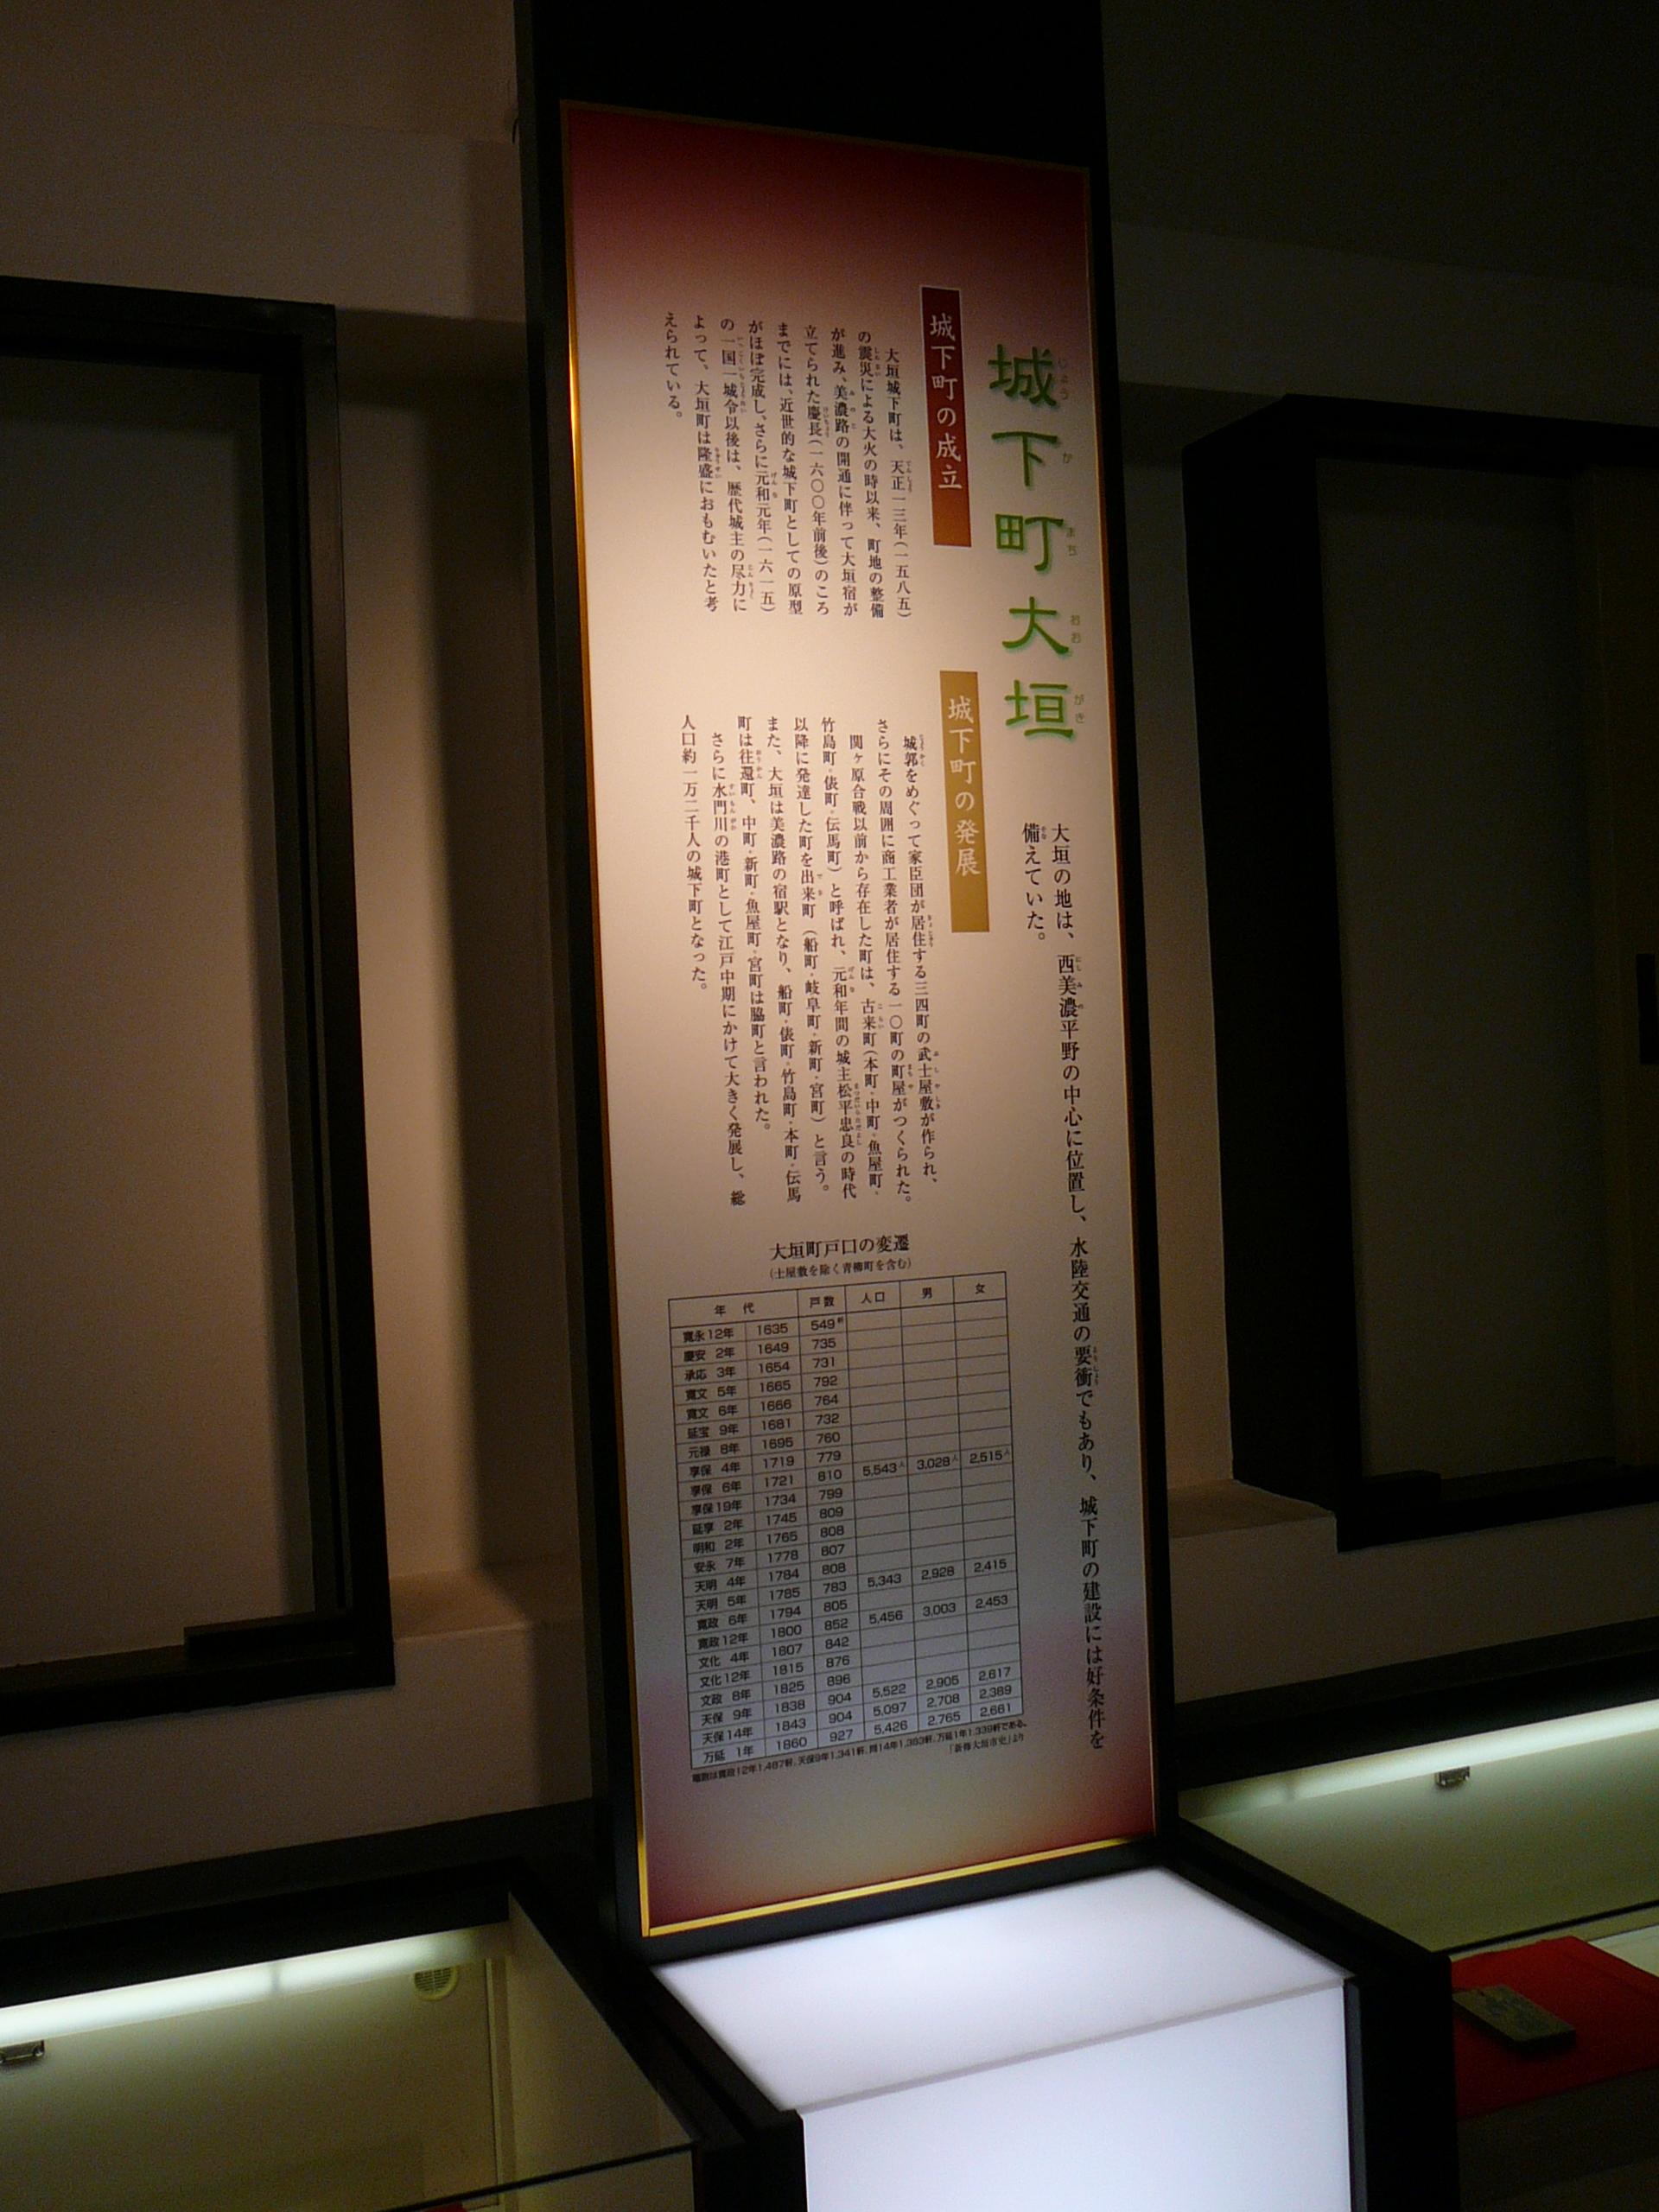 城下町大垣
じょう か まち おお がき
大垣の地は、西美濃平野の中心に位置し、水陸交通の要衝でもあり、城下町の建設には好条件を
備えていた。
城下町の成立
大垣城下町は、天正一三年(一五八五)
の震災による大火の時以来、町地の整備
が進み、美濃路の開通に伴って大垣宿が
立てられた慶長(一六〇〇年前後)のころ
までには、近世的な城下町としての原型
がほぼ完成し、さらに元和元年(一六一五)
の一国一城令以後は、歴代城主の尽力に
よって、大垣町は隆盛におもむいたと考
えられている。
城下町の発展
城郭をめぐって家臣団が居住する三四町の武士屋敷が作られ、
さらにその周囲に商工業者が居住する一〇町の町屋がつくられた。
関ヶ原合戦以前から存在した町は、古来町(本町・中町・魚屋町・
竹島町・俵町・伝馬町)と呼ばれ、元和年間の城主松平忠良の時代
以降に発達した町を出来町(船町・岐阜町・新町・宮町)と言う。
また、大垣は美濃路の宿駅となり、船町・俵町・竹島町・本町・伝馬
町は往還町、中町・新町・魚屋町・宮町は脇町と言われた。
さらに水門川の港町として江戸中期にかけて大きく発展し、総
人口約一万二千人の城下町となった。
大垣町戸口の変遷
(士屋敷を除く青柳町を含む)
年 代 戸数 人口 男 女
寛永12年 1635 549軒
慶安 2年 1649 735
承応 3年 1654 731
寛文 5年 1665 792
寛文 6年 1666 764
延宝 9年 1681 732
元禄 8年 1695 760
享保 4年 1719 779
享保 6年 1721 810 5,543人 3,028人 2,515人
享保19年 1734 799
延享 2年 1745 809
明和 2年 1765 808
安永 7年 1778 807
天明 4年 1784 808
天明 5年 1785 783 5,343 2,928 2,415
寛政 6年 1794 805
寛政12年 1800 852 5,456 3,003 2,453
文化 4年 1807 842
文化12年 1815 876
文政 8年 1825 896
天保 9年 1838 904 5,522 2,905 2,617
天保14年 1843 904 5,097 2,708 2,389
万延 1年 1860 927 5,426 2,765 2,661
竈数は寛政12年1,487軒、天保9年1,341軒、同14年1,363軒、万延1年1,339軒である。
「新修大垣市史」より